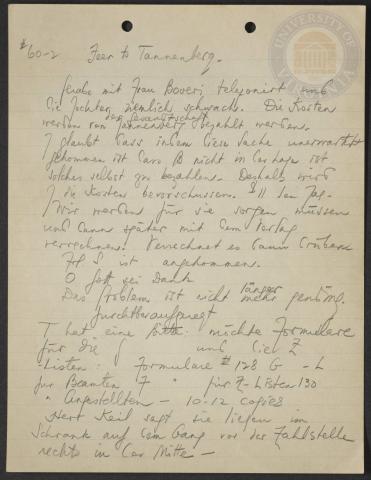 #60-2 Jeer to Tannenberg.
Habe mit Frau Boveri telefonirt und
die Tochter ziemlich schwach. Die Kosten
der Gesandtschaft
werden von Tannenberg bezahlt werden.
T glaubt dass indem diese Sache unerwartet
gekommen ist Caro B nicht in der Lage ist
solches selbst zu bezahlen. Deshalb wird
T die Kosten bevorschussen.
Wir werden für sie sorgen müssen
und dann später mit dem Verlag
verrechnen. Verrechnet es dann drüben
ist angekommen.
O Gott sei Dank
Das Problem ist nicht mehr genüng.
länger
furchtbar aufgeregt
T hat eine Bitte: möchte Formulare
für die und die Z
-Listen: Formulare #128 G - L
für Beamten 7 " für Z-Listen 130
" Angestellten - 10-12 copies
Herr Keil sagt sie liegen im
Schrank auf dem Gang vor der Zahlstelle
rechts in der Mitte -
UNIVERSITY OF VIRGINIA